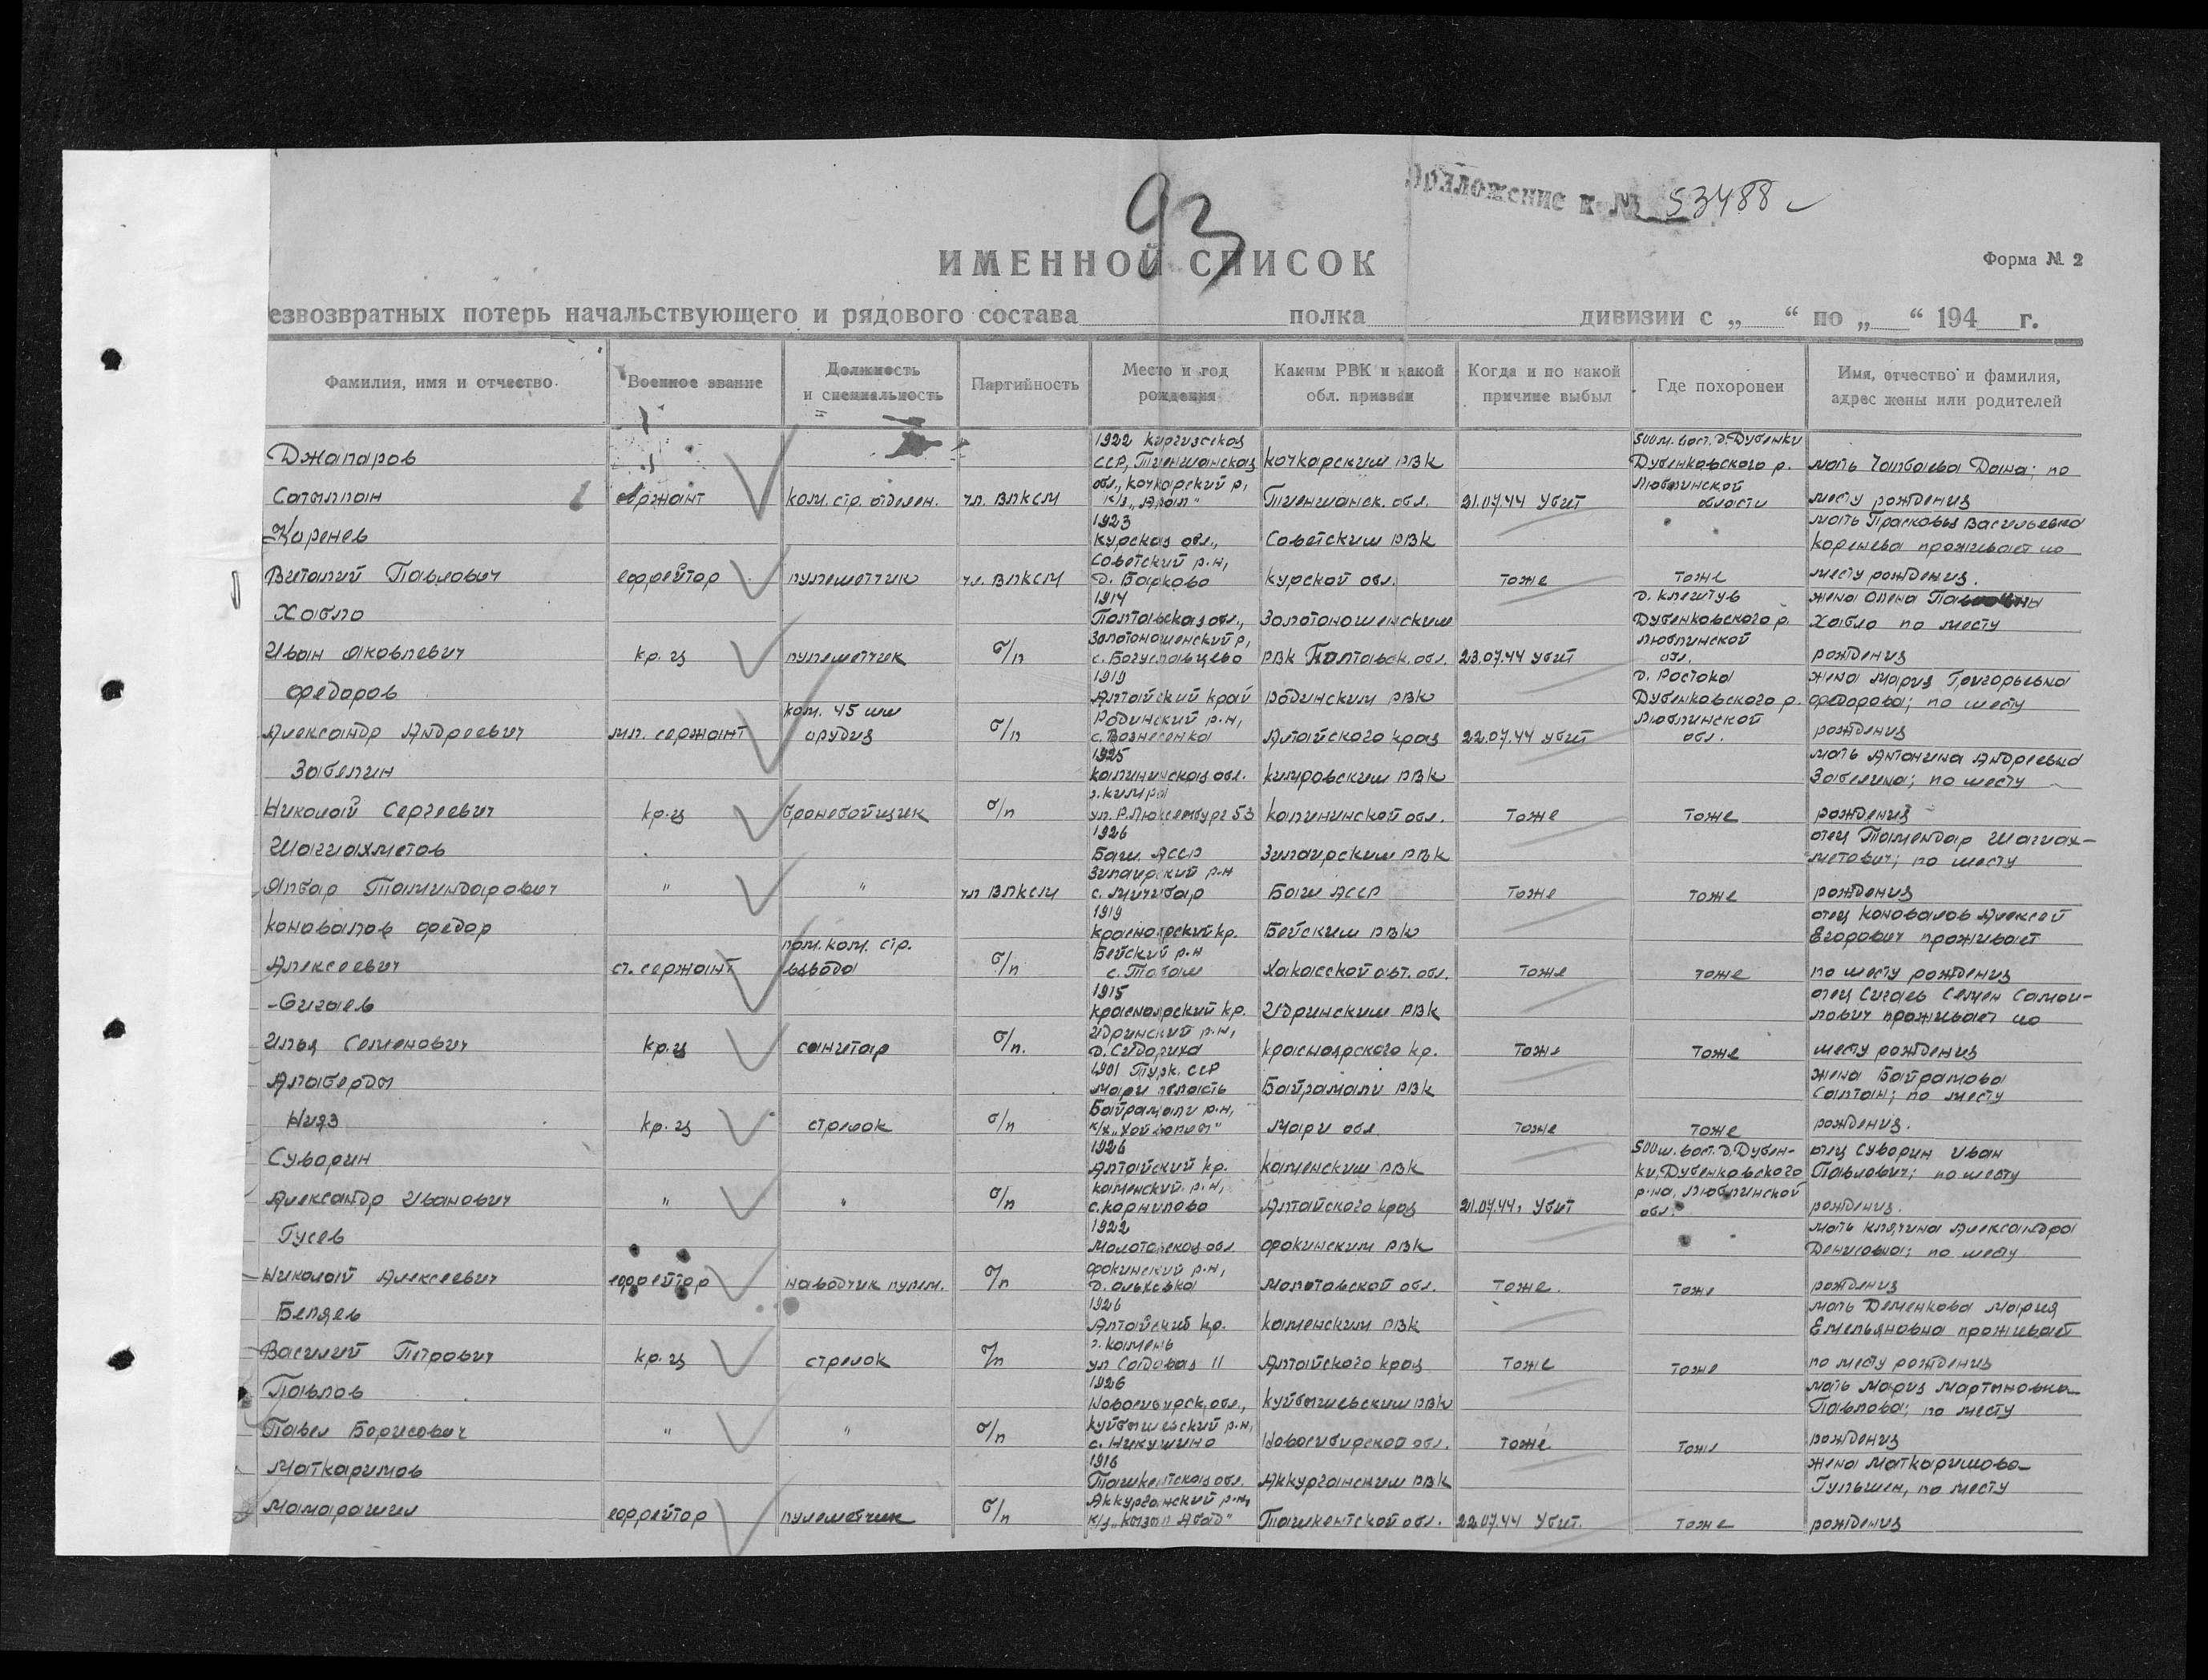 93
Приложение к № 53488
ИМЕННОЙ СПИСОК
Форма № 2
езвозвратных потерь начальствующего и рядового состава полка дивизии с „ “ по „ “ 194 г.
Фамилия, имя и отчество | Военное звание | Должность и специальность | Партийность | Место и год рождения | Каким РВК и какой обл. призван | Когда и по какой причине выбыл | Где похоронен | Имя, отчество и фамилия, адрес жены или родителей
Джапаров Сатылпан | сержант | ком. стр. отделен. | чл. ВЛКСМ | 1922 Киргизская ССР, Тяншанская обл., Кочкарский р, к/з „Арал“ | Кочкарским РВК Тяншанск. обл. | 21.07.44 убит | 500 м. вост. д. Дубенки Дубенковского р. Люблинской области | мать Чалбаева Дана; по месту рождения
Каренев Виталий Павлович | ефрейтор | пулеметчик | чл. ВЛКСМ | 1923 Курская обл., Советский р-н, д. Барково | Советским РВК Курской обл. | тоже | тоже | мать Прасковья Васильевна Коренева проживает по месту рождения.
Хабло Иван Яковлевич | кр-ц | пулеметчик | б/п | 1914 Полтавская обл., Золотоношенский р, с. Богуславцево | Золотоношенским РВК Полтавск. обл. | 23.07.44 убит | д. Клештув Дубенковского р. Люблинской обл. | жена Олена Хабло по месту рождения
Федоров Александр Андреевич | мл. сержант | ком. 45 мм орудия | б/п | 1919 Алтайский край Родинский р-н, с. Вознесенка | Родинским РВК Алтайского края | 22.07.44 убит | д. Ростока Дубенковского р. Люблинской обл. | жена Мария Григорьевна Федорова; по месту рождения
Забелин Николай Сергеевич | кр-ц | бронебойщик | б/п | 1925 Калининская обл. г. Кимры ул. Р. Люксембург 53 | Кимровским РВК Калининской обл. | тоже | тоже | мать Антонина Андреевна Забелина; по месту рождения
Шагиахметов Янбар Таминдарович | " | " | чл ВЛКСМ | 1926 Баш. АССР Зилаирский р-н с. | Зилаирским РВК Баш АССР | тоже | тоже | отец Тамендар Шагиахметович; по месту рождения
Коновалов Федор Алексеевич | ст. сержант | пом. ком. стр. взвода | б/п | 1919 Красноярский кр. Бейский р-н с. Табаш | Бейским РВК Хакасской авт. обл. | тоже | тоже | отец Коновалов Алексей Егорович проживает по месту рождения
-Сигаев Илья Семенович | кр-ц | санитар | б/п. | 1915 Красноярский кр. Идринский р-н, д. Сидориха | Идринским РВК Красноярского кр. | тоже | тоже | отец Сигаев Семен Самойлович проживает по месту рождения
Алаберды Нияз | кр-ц | стрелок | б/п | 1901 Турк. ССР Мари область Байрамали р-н, | Байрамали РВК Мари обл. | тоже | тоже | жена Байрамова Салтан; по месту рождения.
Суворин Александр Иванович | " | " | б/п | 1926 Алтайский кр. Каменский р-н, с. Корнилово | Каменским РВК Алтайского края | 21.07.44. убит | 500 м. вост. д. Дубенки, Дубенковского р-на, Люблинской обл. | отец Суворин Иван Павлович; по месту рождения.
Гусев Николай Алексеевич | ефрейтор | наводчик пулем. | б/п | 1922 Молотовская обл Фокинский р-н, д. Ольховка | Фокинским РВК Молотовской обл. | тоже. | тоже | мать Клячина Александра Денисовна; по месту рождения
Беляев Василий Петрович | кр-ц | стрелок | б/п | 1926 Алтайский кр. г. Камень ул Садовая 11 | Каменским РВК Алтайского края | тоже | тоже | мать Деменкова Мария Емельяновна проживает по месту рождения
Павлов Павел Борисович | " | " | б/п | 1926 Новосибирск. обл., Куйбышевский р-н, с. Никушино | Куйбышевским РВК Новосибирской обл. | тоже | тоже | мать Мария Мартыновна Павлова; по месту рождения
Маткаримов Мамарашии | ефрейтор | пулеметчик | б/п | 1916 Ташкентская обл. Аккурганский р-н, к/з „Кызал Абад“ | Аккурганским РВК Ташкентской обл. | 22.07.44 убит. | тоже | жена Маткаримова Гульшен, по месту рождения